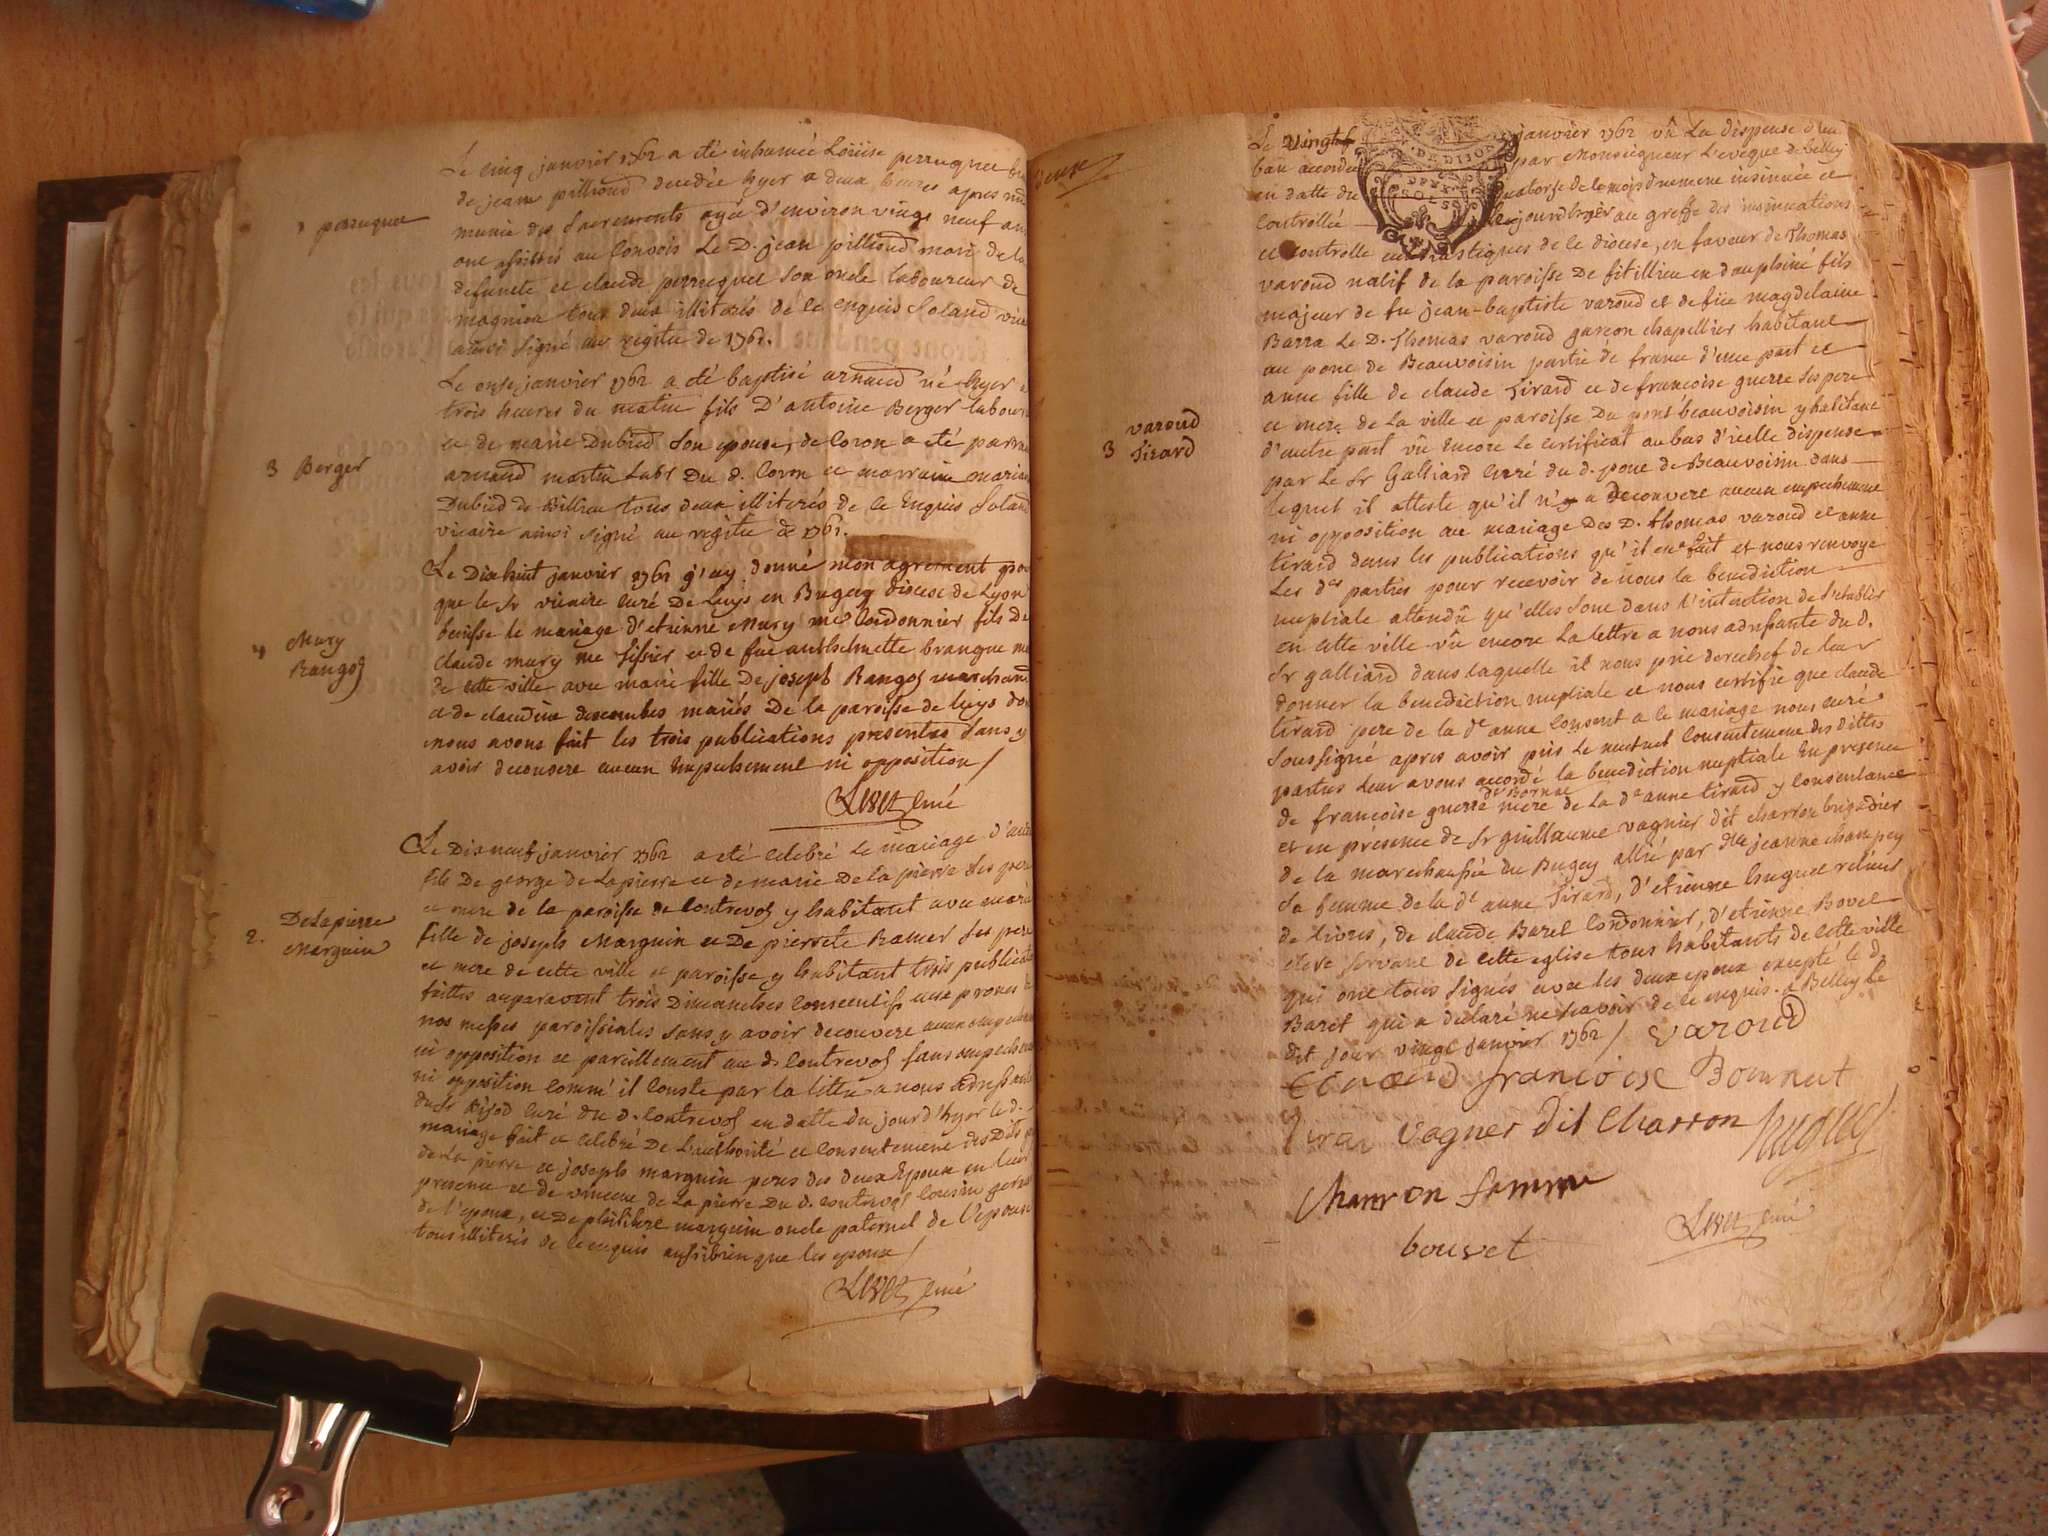 perruquet
Le cinq janvier 1762 a été inhumée Loüise perruquet
de jean pilliond decedée hyer a deux heures apres
munie des Sacrements agée d'environ vingt neuf ans
ont assistés au Convois Le D. jean pilliond mari de la
defuncte et claude perruquet son oncle laboureur de
magnieu tous deux illiterés de ce enquis Soland
ainsi signé au regitre de 1762.
3 Berger
Le onze janvier 1762 a été baptisé arnaud né hyer a
trois heures du matin fils D'antoine Berger
et de marie Dubied son epouse, de Coron a été
arnaud martin Lab.r Du d. Coron et marraine
Dubied de Billieu tous deux illiterés de ce Enquis Soland
vicaire ainsi signé au regitre de 1762.
4 Mury
Rangos
Le Dixhuit janvier 1762 j'ay donné mon agrement
que le Sr vicaire curé De Luys en Bugey diocese de Lyon
benisse le mariage d'etienne Mury me Cordonnier fils De
claude mury me tissier et de fue anthelmette
de cette ville avec marie fille De joseph Rangos marchand
et de claudine descombes mariés De la paroisse de luys
nous avons fait les trois publications presentes sans y
avoir decouvert aucun Empechement ni opposition /
curé
2. Delapierre
Marguin
Le Dixneuf janvier 1762 a eté celebré Le mariage
fils De george de Lapierre et de marie De la pierre ses pere
et mere de la paroisse de Contrevos y habitant avec
fille de joseph Marguin et De pierrete Ramer ses pere
et mere de cette ville et paroisse y habitant trois
faittes auparavant trois Dimanches Consecutifs aux prones
nos messes paroissiales sans y avoir decouvert aucun
ni opposition et pareillement au d. Contrevos sans
ni opposition comme il Conste par la lettre a nous
du Sr curé du d. Contrevos en datte du jour d'hyer le d.
mariage fait et celebré De l'authorité et consentement des Dits
de La pierre et joseph marguin peres des deux Epoux en leur
presence et de vincent de La pierre Du d. Contrevos Cousin
de l'epoux, et De philibert marguin oncle paternel de l'epouse
tous illiterés de ce enquis aussibien que les epoux /
curé
deux
varoud
3 tirard
Le vingt janvier 1762 vû La dispense d'un
ban accordée par Monseigneur L'eveque de Belley
en datte du quatorse de ce mois insinuée et
Controllée le jourd'hyer au greffe des insinuations
et controlle de ce diocese, en faveur de Thomas
varoud natif de la paroisse De fitillieu en dauphiné fils
majeur de fu jean-baptiste varoud et de füe magdelaine
Barra Le D. Thomas varoud garcon chapellier habitant
au pont de Beauvoisin partie de france d'une part et
anne fille de claude Tirard et de francoise guerre ses pere
et mere de La ville et paroisse Du pont beauvoisin y habitant
d'autre part vû encore Le certificat au bas d'icelle dispense
par Le Sr Galliard curé du d. pont de Beauvoisin dans
lequel il atteste qu'il n'y a decouvert aucun empechement
ni opposition au mariage Des D. thomas varoud et anne
tirard dans les publications qu'il en a fait et nous renvoye
Les d.es parties pour recevoir de nous la benediction
nuptiale attendû qu'elles sont dans l'intention de s'etablir
en cette ville vû encore La lettre a nous du d.
Sr galliard dans laquelle il nous prie derechef de leur
donner la benediction nuptiale et nous certifie que claude
tirard pere de la d.e anne Consent a ce mariage nous curé
Soussigné apres avoir pris Le mutuel Consentement des dittes
parties Leur avons accordé la benediction nuptiale En presence
de francoise guerre mere de La d.e anne tirard y Consentante
et en présence de Sr guillaume vagnier dit charron brigadier
de la marechaussée du Bugey par d.lle jeanne
sa femme de la d.e anne Tirard, d'etienne huguet relieur
de Livres, de claude Baret Cordonnier, d'etienne Bovet
clerc servant de cette eglise tous habitants de cette ville
qui ont tous signés avec les deux epoux excepté le d.
Baret qui a declaré ne scavoir de ce enquis. a Belley Le
dit jour vingt janvier 1762 / varoud
francoise
vagner dit charron huguet
femme
bouvet
curé